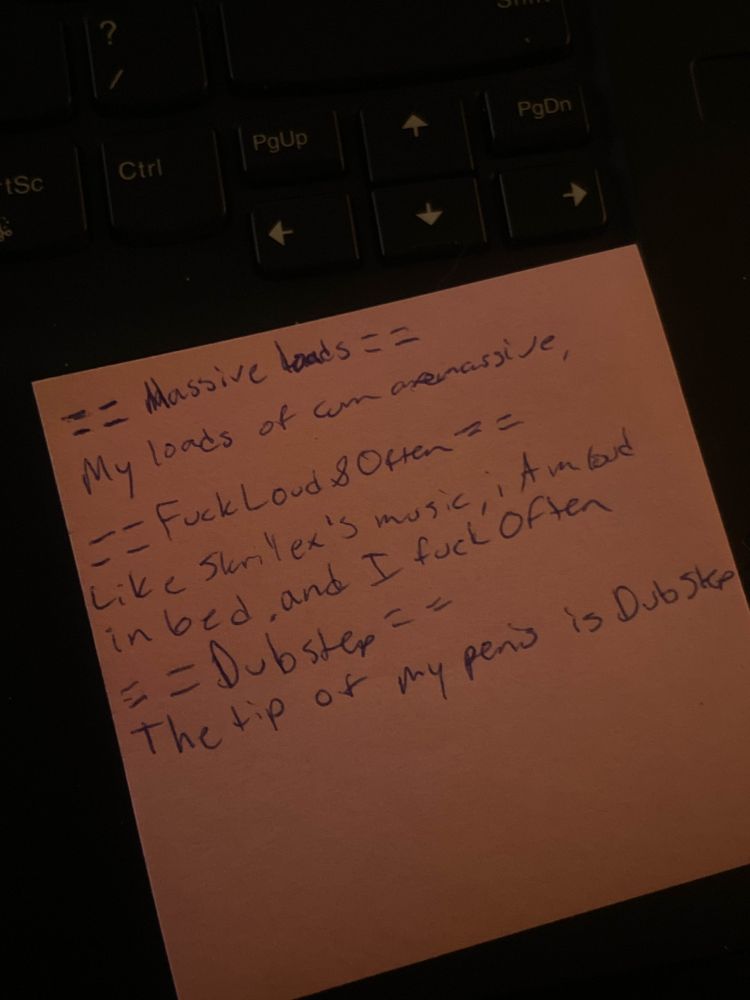 Shift
?
/
PgUp
PgDn
rtSc
Ctrl
== Massive loads ==
My loads of cum are massive,
== Fuck Loud & Often ==
Like Skrilex's music, i Am loud
in bed. and I fuck Often
== Dubstep ==
The tip of my penis is Dubstep